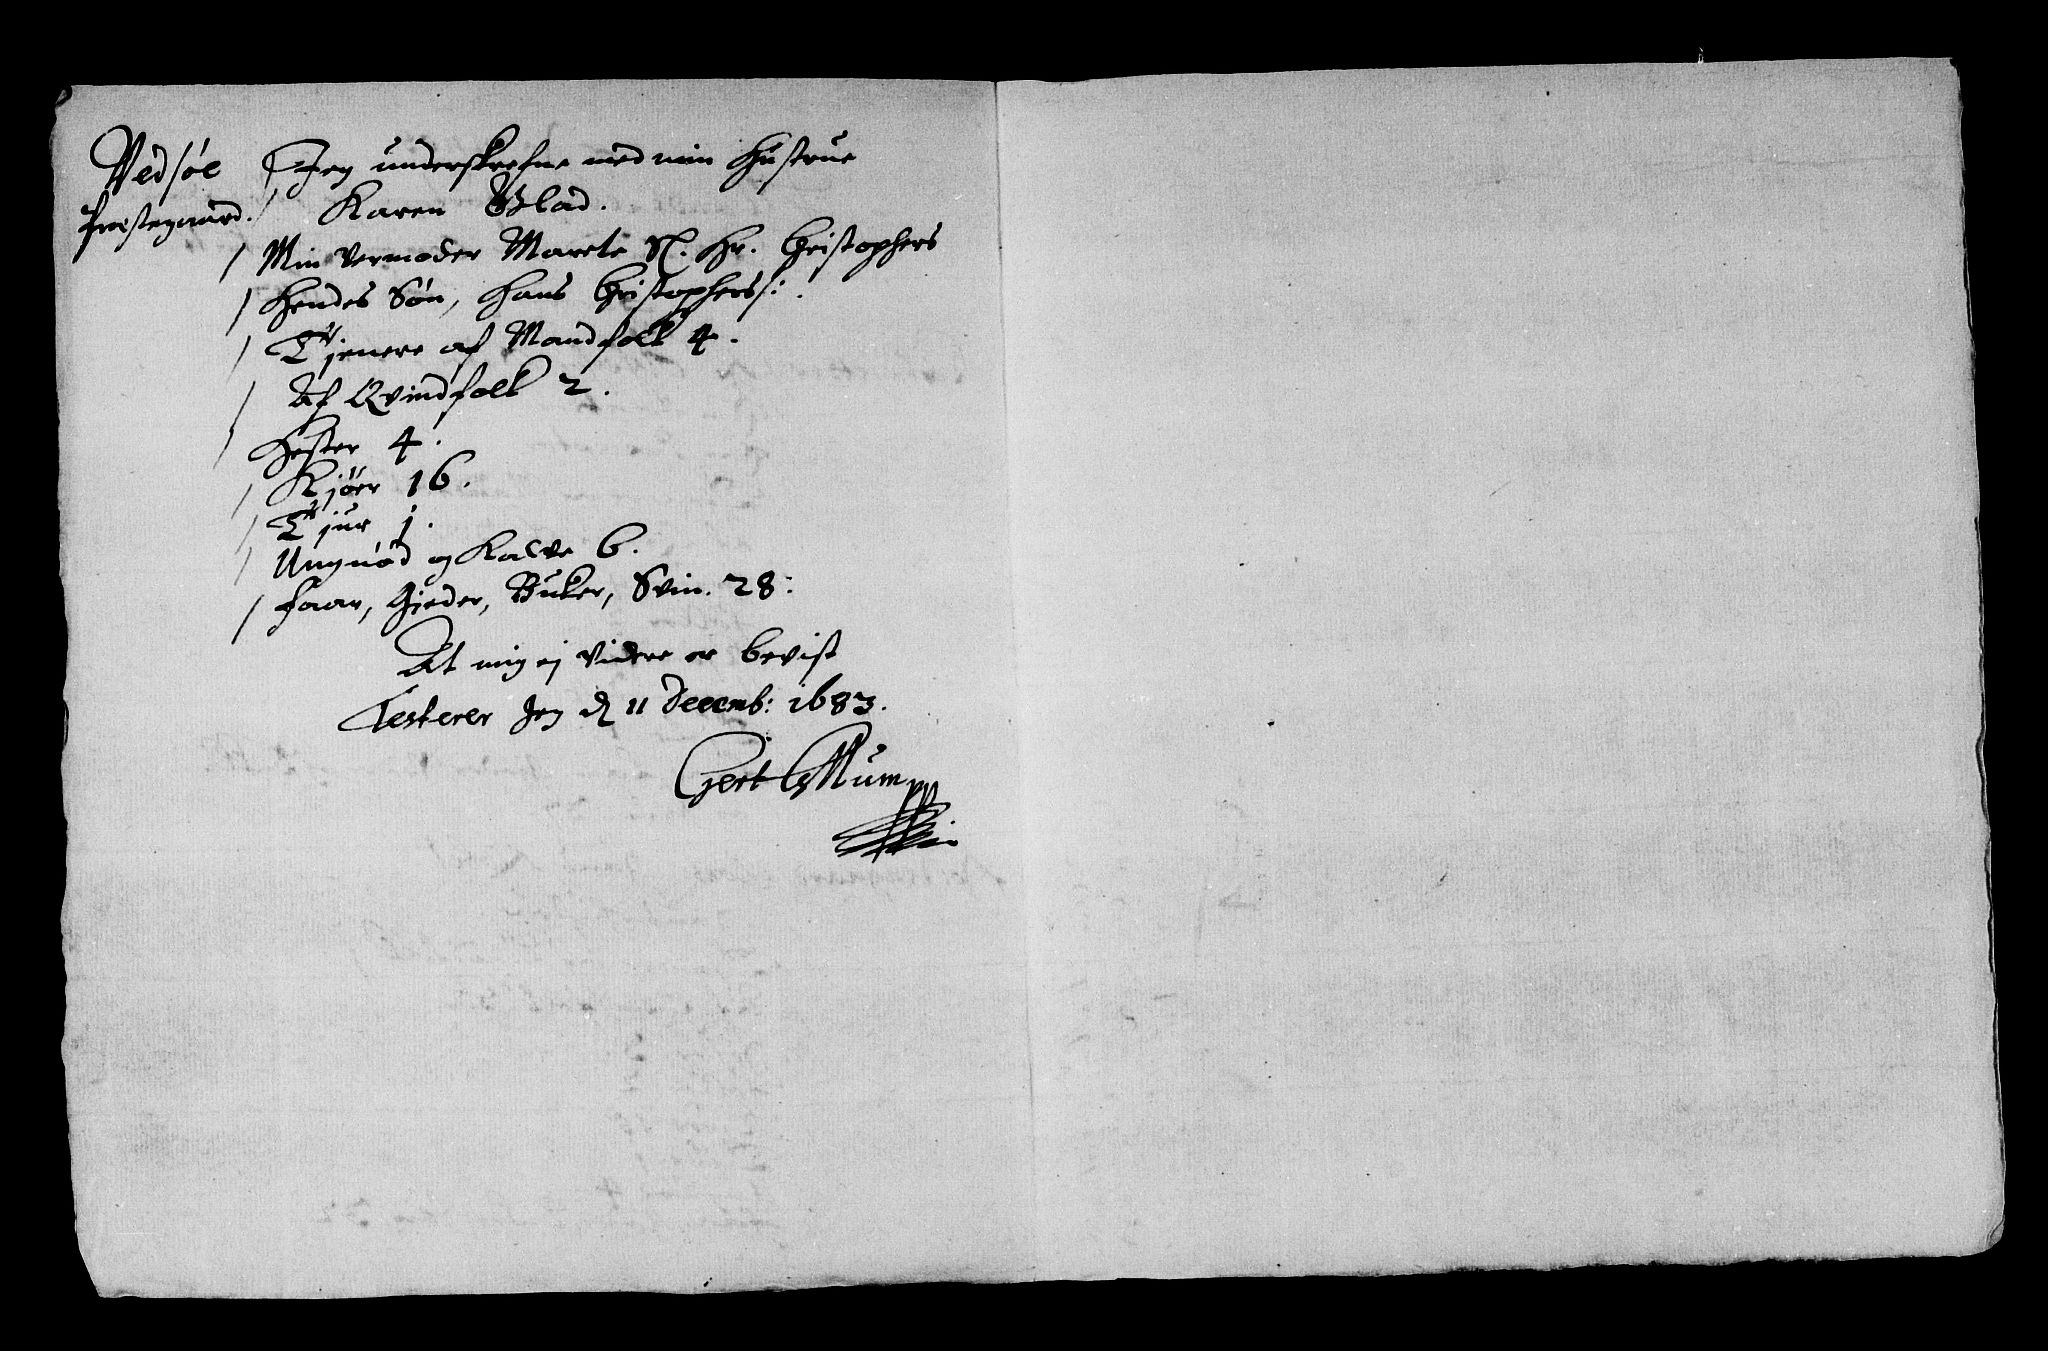 Vedsøe
Præstegaard.
Jeg underskrefne med min Hustrue
Karen Blad.
Min Vermoder Marete Sl. Hr. Christophers
Hendes Søn, Hans Christophers:
Tjenere af Mandfolk 4.
Af Qvindfolk 2.
Hester 4.
Kjøer 16.
Tjur 1.
Ungnød og Kalve 6.
Faar, Gjeder, Buker, Svin. 28:
At mig ej videre er bevist
Testerer Jeg d 11 Decemb: 1683.
Gert Mum